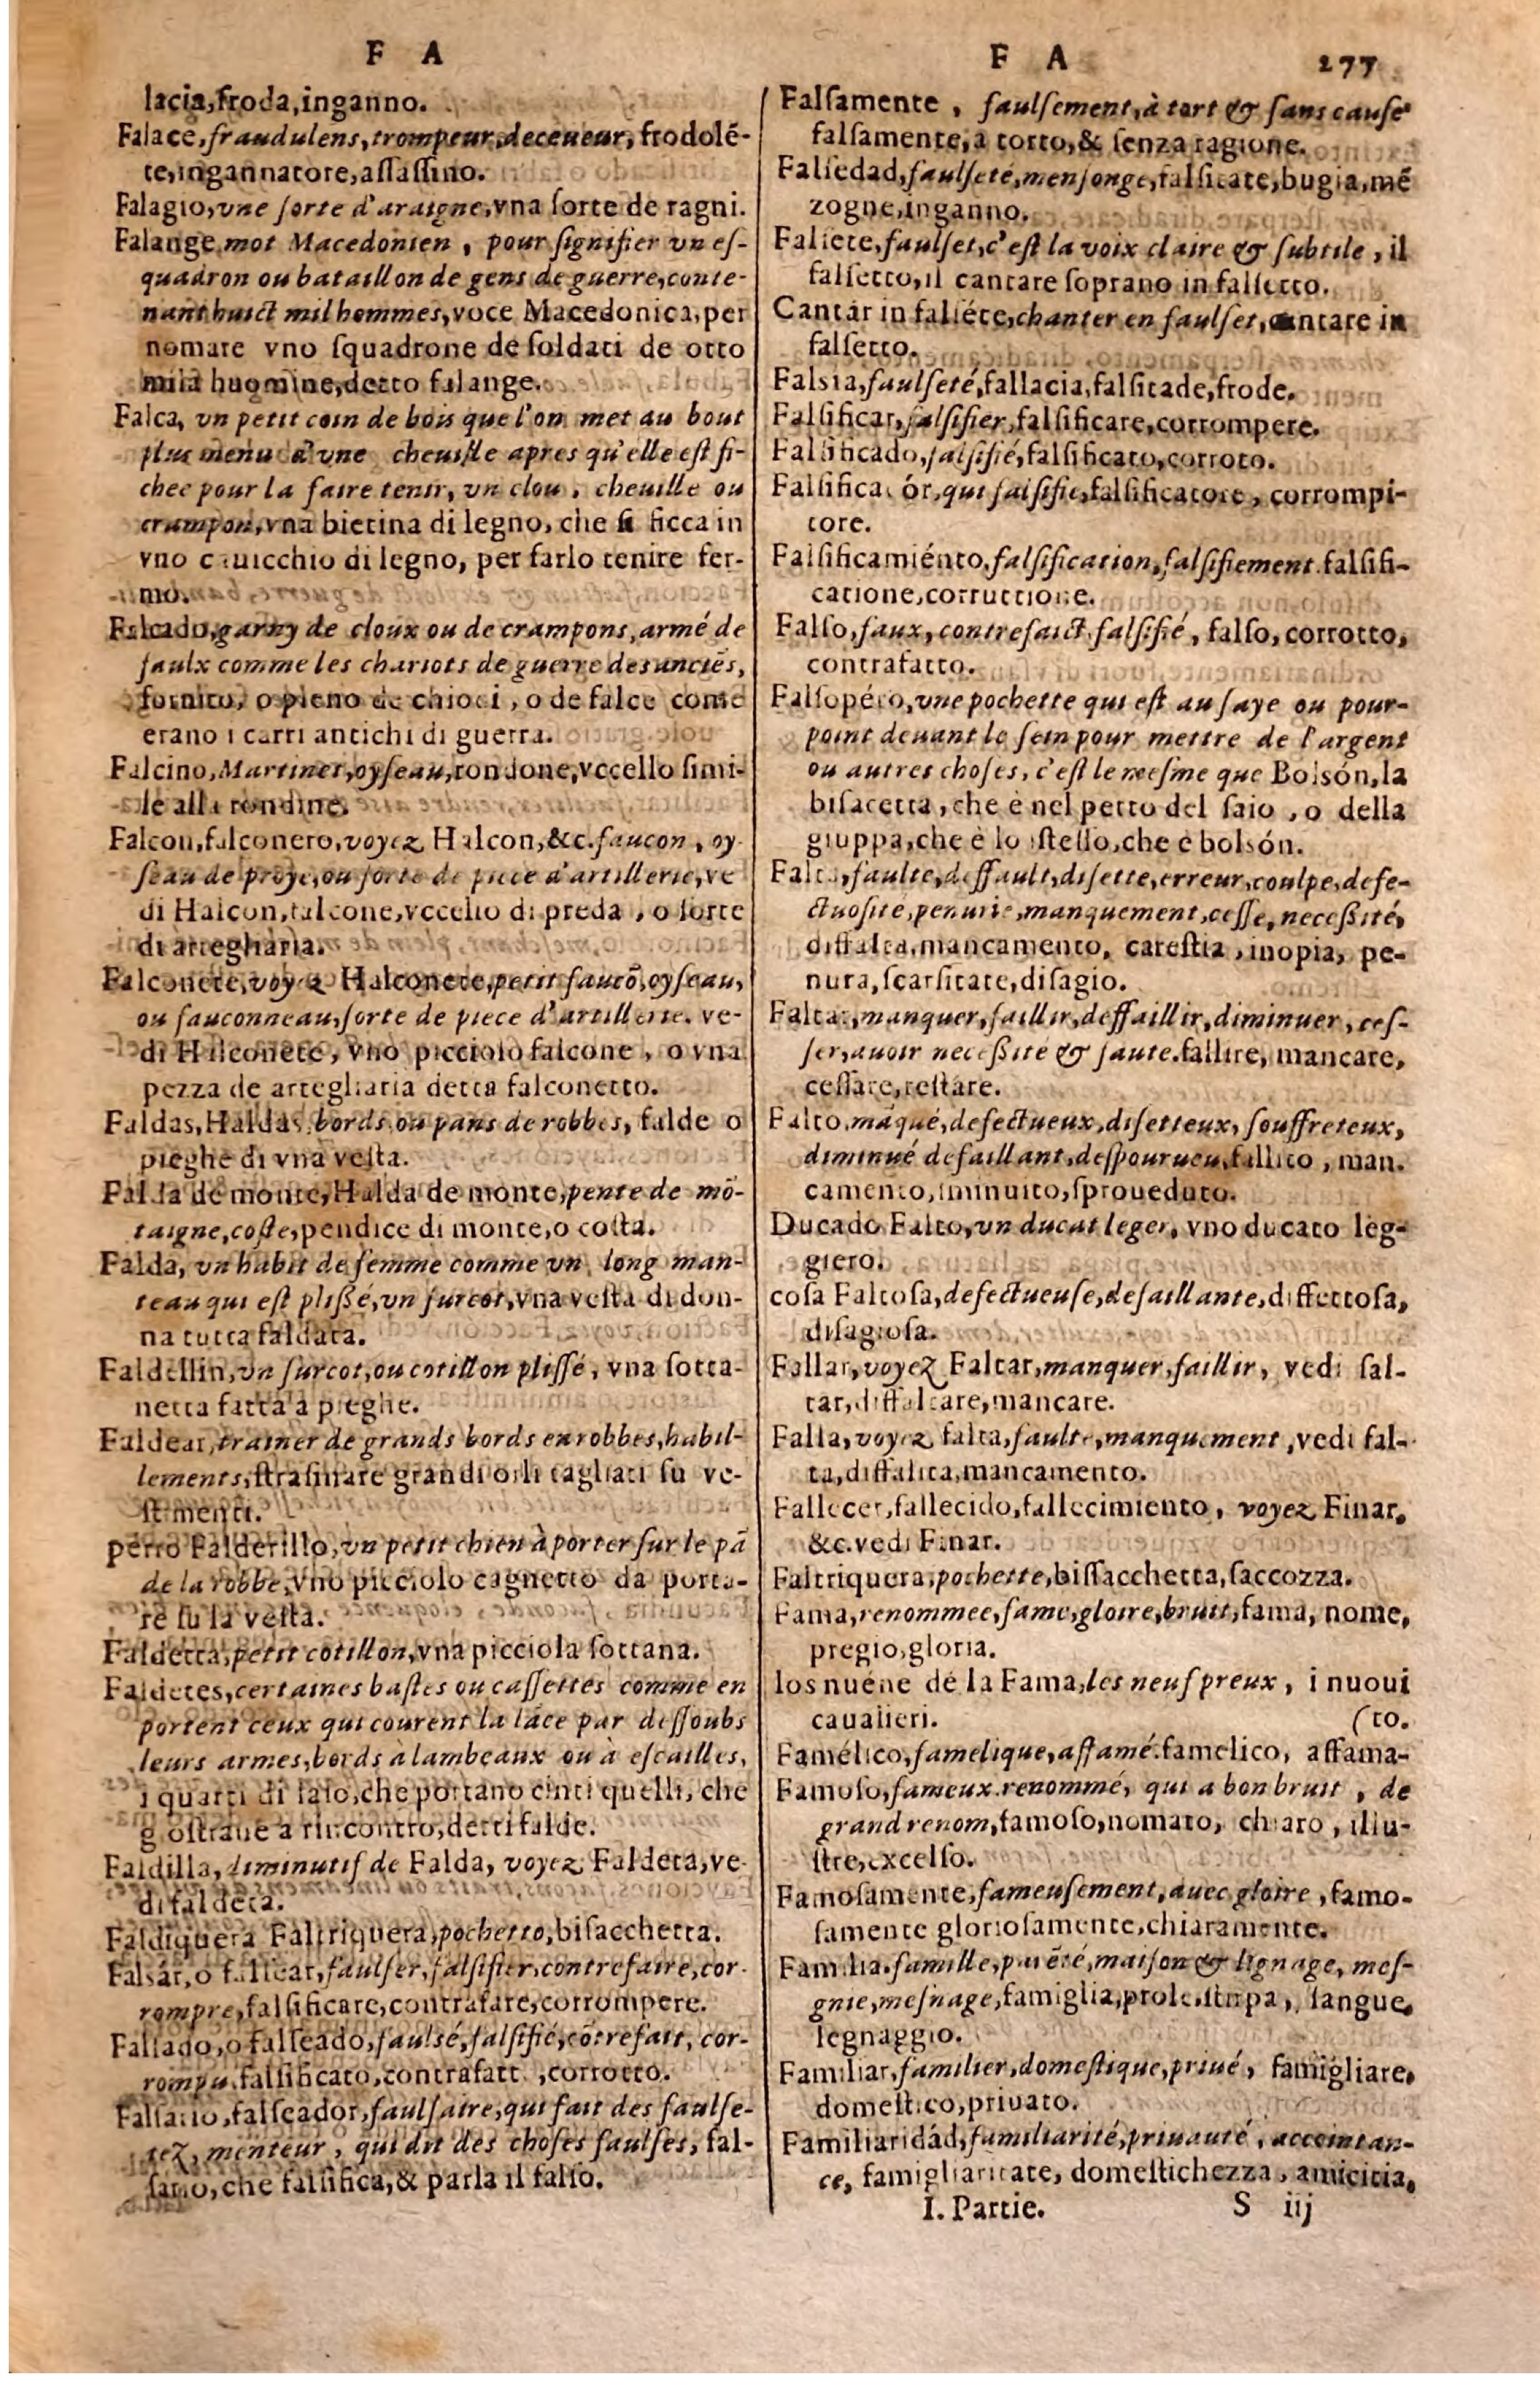 F A
lacia, froda, inganno.
Falace, fraudulens, trompeur, deceueur, frodolē-
te, ingannatore, aſſaſſino.
Falagio, vne ſorte d'araigne, vna ſorte de ragni.
Falange mot Macedonien, pour ſignifier vn eſ-
quadron ou bataillon de gens de guerre, conte-
nant huict mil hommes, voce Macedonica, per
nomare vno ſquadrone de ſoldati de otto
mila huomine, detto falange.
Falca, vn petit coin de bois que l'on met au bout
plus menu d'vne cheuille apres qu'elle eſt fi-
chee pour la faire tenir, vn clou, cheuille ou
crampon, vna bietina di legno, che ſi ficca in
vno cauicchio di legno, per farlo tenire fer-
mo.
Falcado, garny de cloux ou de crampons, armé de
faulx comme les chariots de guerre des anciēs,
fornito, o pieno de chiodi, o de falce come
erano i carri antichi di guerra.
Falcino, Martinet, oyſeau, rondone, vccello ſimi-
le alla rondine.
Falcon, falconero, voyez Halcon, &c. faucon, oy-
ſeau de proye, ou ſorte de piece d'artillerie, ve
di Halcon, falcone, vccello di preda, o ſorte
di artegliaria.
Falconete, voyez Halconete, petit faucō, oyſeau,
ou fauconneau, ſorte de piece d'artillerie. ve-
di Halconete, vno picciolo falcone, o vna
pezza de artegliaria detta falconetto.
Faldas, Haldas, bords ou pans de robbes, falde o
pieghe di vna veſta.
Falda de monte, Halda de monte, pente de mō-
taigne, coſte, pendice di monte, o coſta.
Falda, vn habit de femme comme vn long man-
teau qui eſt pliſſé, vn ſurcot, vna veſta di don-
na tutta faldata.
Faldellin, vn ſurcot, ou cotillon pliſſé, vna ſotta-
netta fatta a pieghe.
Faldear, trainer de grands bords en robbes, habil-
lements, ſtraſinare grandi orli tagliati ſu ve-
ſtimenti.
perro Falderillo, vn petit chien à porter ſur le pā
de la robbe, vno picciolo cagnetto da porta-
re ſu la veſta.
Faldetta, petit cotillon, vna picciola ſottana.
Faldetes, certaines baſtes ou caſſettes comme en
portent ceux qui courent la lāce par deſſoubs
leurs armes, bords à lambeaux ou à eſcailles,
i quarti di ſaio, che portano cinti quelli, che
gioſtrane a rincontro, detti falde.
Faldilla, diminutif de Falda, voyez Faldeta, ve-
di faldeta.
Faldiquera Faltriquera, pochetto, biſacchetta.
Falsár, o falſear, faulſer, falſifier, contrefaire, cor-
rompre, falſificare, contrafare, corrompere.
Falſado, o falſeado, faulsé, falſifié, cōtrefait, cor-
rompu. falſificato, contrafatt, corrotto.
Falſario, falſeador, faulſaire, qui fait des faulſe-
tez, menteur, qui dit des choſes faulſes, fal-
ſario, che falſifica, & parla il falſo.
F A 277
Falſamente, faulſement, à tort & ſans cauſe
falſamente, a torto, & ſenza ragione.
Falſedad, faulſeté, menſonge, falſitate, bugia, mē
zogne, inganno.
Falſete, faulſet, c'eſt la voix claire & ſubtile, il
falſetto, il cantare ſoprano in falſetto.
Cantár in falſéte, chanter en faulſet, cantare in
falſetto.
Falsia, faulſeté, fallacia, falſitade, frode.
Falſificar, falſifier, falſificare, corrompere.
Falſificado, falſifié, falſificato, corroto.
Falſificadór, qui falſifie, falſificatore, corrompi-
tore.
Falſificamiénto, falſification, falſifiement. falſifi-
catione, corruttione.
Falſo, faux, contrefaict, falſifié, falſo, corrotto,
contrafatto.
Falſopéto, vne pochette qui eſt au ſaye ou pour-
point deuant le ſein pour mettre de l'argent
ou autres choſes, c'eſt le meſme que Bolsón, la
biſacetta, che è nel petto del ſaio, o della
giuppa, che è lo iſteſſo, che è bolsón.
Falta, faulte, deffault, diſette, erreur, coulpe, defe-
ctuoſité, penurie, manquement, ceſſe, neceßité,
diffalta, mancamento, careſtia, inopia, pe-
nura, ſcarſitate, diſagio.
Faltar, manquer, faillir, deffaillir, diminuer, ceſ-
ſer, auoir neceßité & faute. fallire, mancare,
ceſſare, reſtare.
Falto, māqué, defectueux, diſetteux, ſouffreteux,
diminué defaillant, deſpourueu, fallito, man.
camento, iminuito, ſproueduto.
Ducado Falto, vn ducat leger, vno ducato leg-
giero.
coſa Faltoſa, defectueuſe, defaillante, diffettoſa,
diſagioſa.
Fallar, voyez Faltar, manquer, faillir, vedi fal-
tar, diffaltare, mancare.
Falla, voyez falta, faulte, manquement, vedi fal-
ta, diffalita, mancamento.
Fallecer, fallecido, fallecimiento, voyez Finar,
&c. vedi Finar.
Faltriquera, pochette, biſſacchetta, ſaccozza.
Fama, renommee, fame, gloire, bruit, fama, nome,
pregio, gloria.
los nuéue de la Fama, les neuf preux, i nuoui
caualieri. (to.
Famélico, famelique, affamé. famelico, affama-
Famoſo, fameux. renommé, qui a bon bruit, de
grand renom, famoſo, nomato, chiaro, illu-
ſtre, excelſo.
Famoſamente, fameuſement, auec gloire, famo-
ſamente glorioſamente, chiaramente.
Familia. famille, parēté, maiſon & lignage, meſ-
gnie, meſnage, famiglia, prole, ſtirpa, ſangue,
legnaggio.
Familiar, familier, domeſtique, priué, famigliare,
domeſtico, priuato.
Familiaridád, familiarité, priuauté, accointan-
ce, famigliaritate, domeſtichezza, amicitia,
I. Partie. S iij